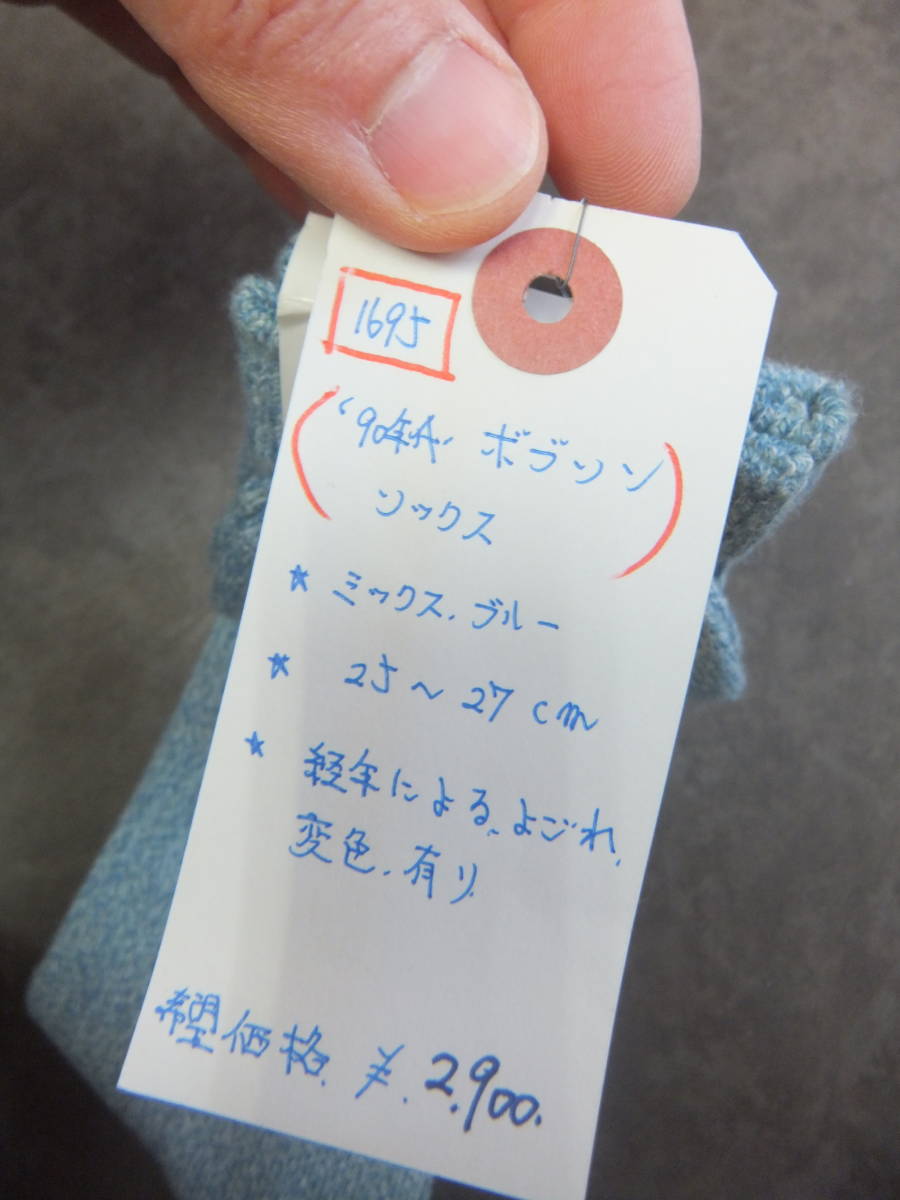 1695
'90年代 ボブソン
ソックス
★ ミックス、ブルー
★ 25～27cm
★ 経年による、よごれ、
変色、有り
希望価格 ¥.2,900.